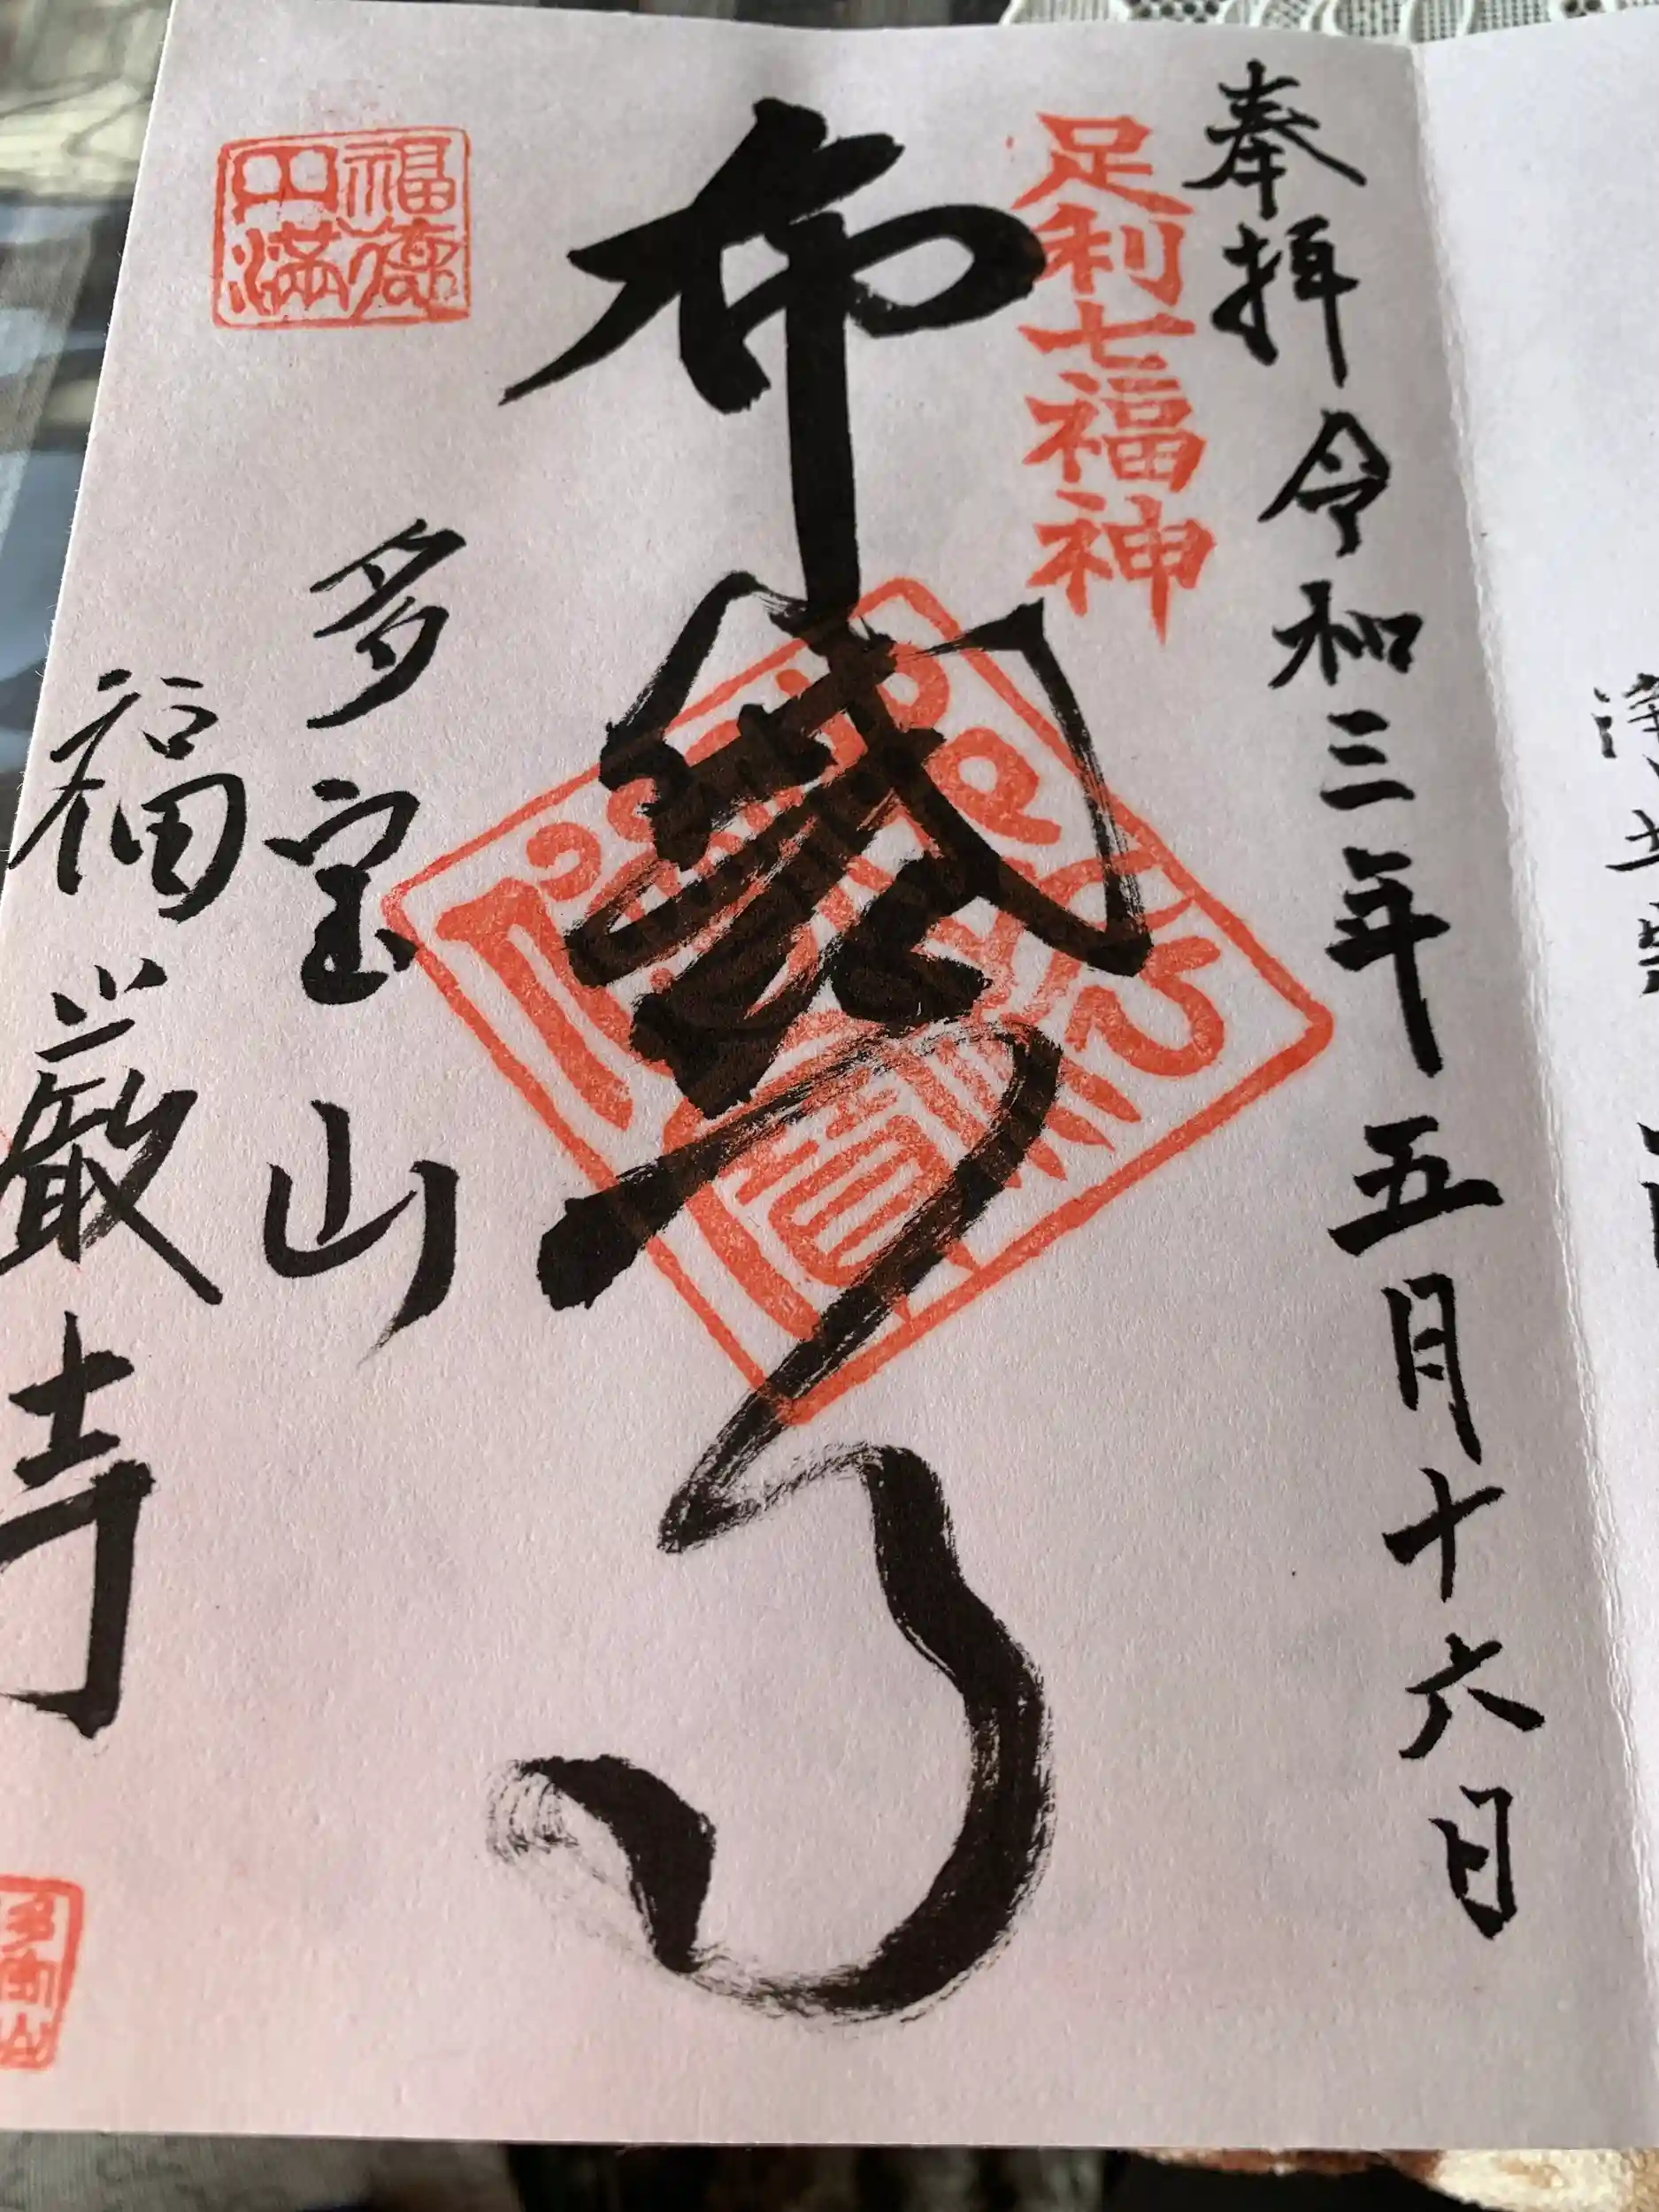 奉拝 令和三年五月十六日
足利七福神
布袋尊
福徳
円満
多宝山
福厳寺
多宝山